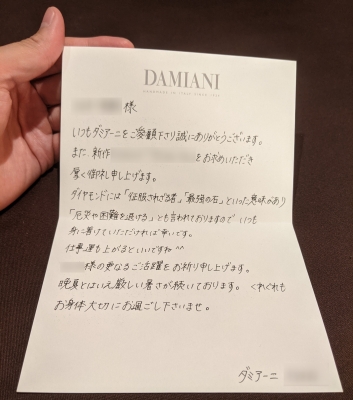 DAMIANI
様
いつもダミアーニをご愛顧下さり誠にありがとうございます。
また 新作
をお求めいただき
厚く御礼申し上げます。
ダイヤモンドには「征服されざる者」「最強の石」といった意味があり
「厄災や困難を退ける」とも言われておりますので いつも
身に着けていただければ幸いです。
仕事運も上がるといいですね ^^
様の更なるご活躍をお祈り申し上げます。
晩夏とはいえ厳しい暑さが続いております。 くれぐれも
お身体大切にお過ごし下さいませ。
ダミアーニ